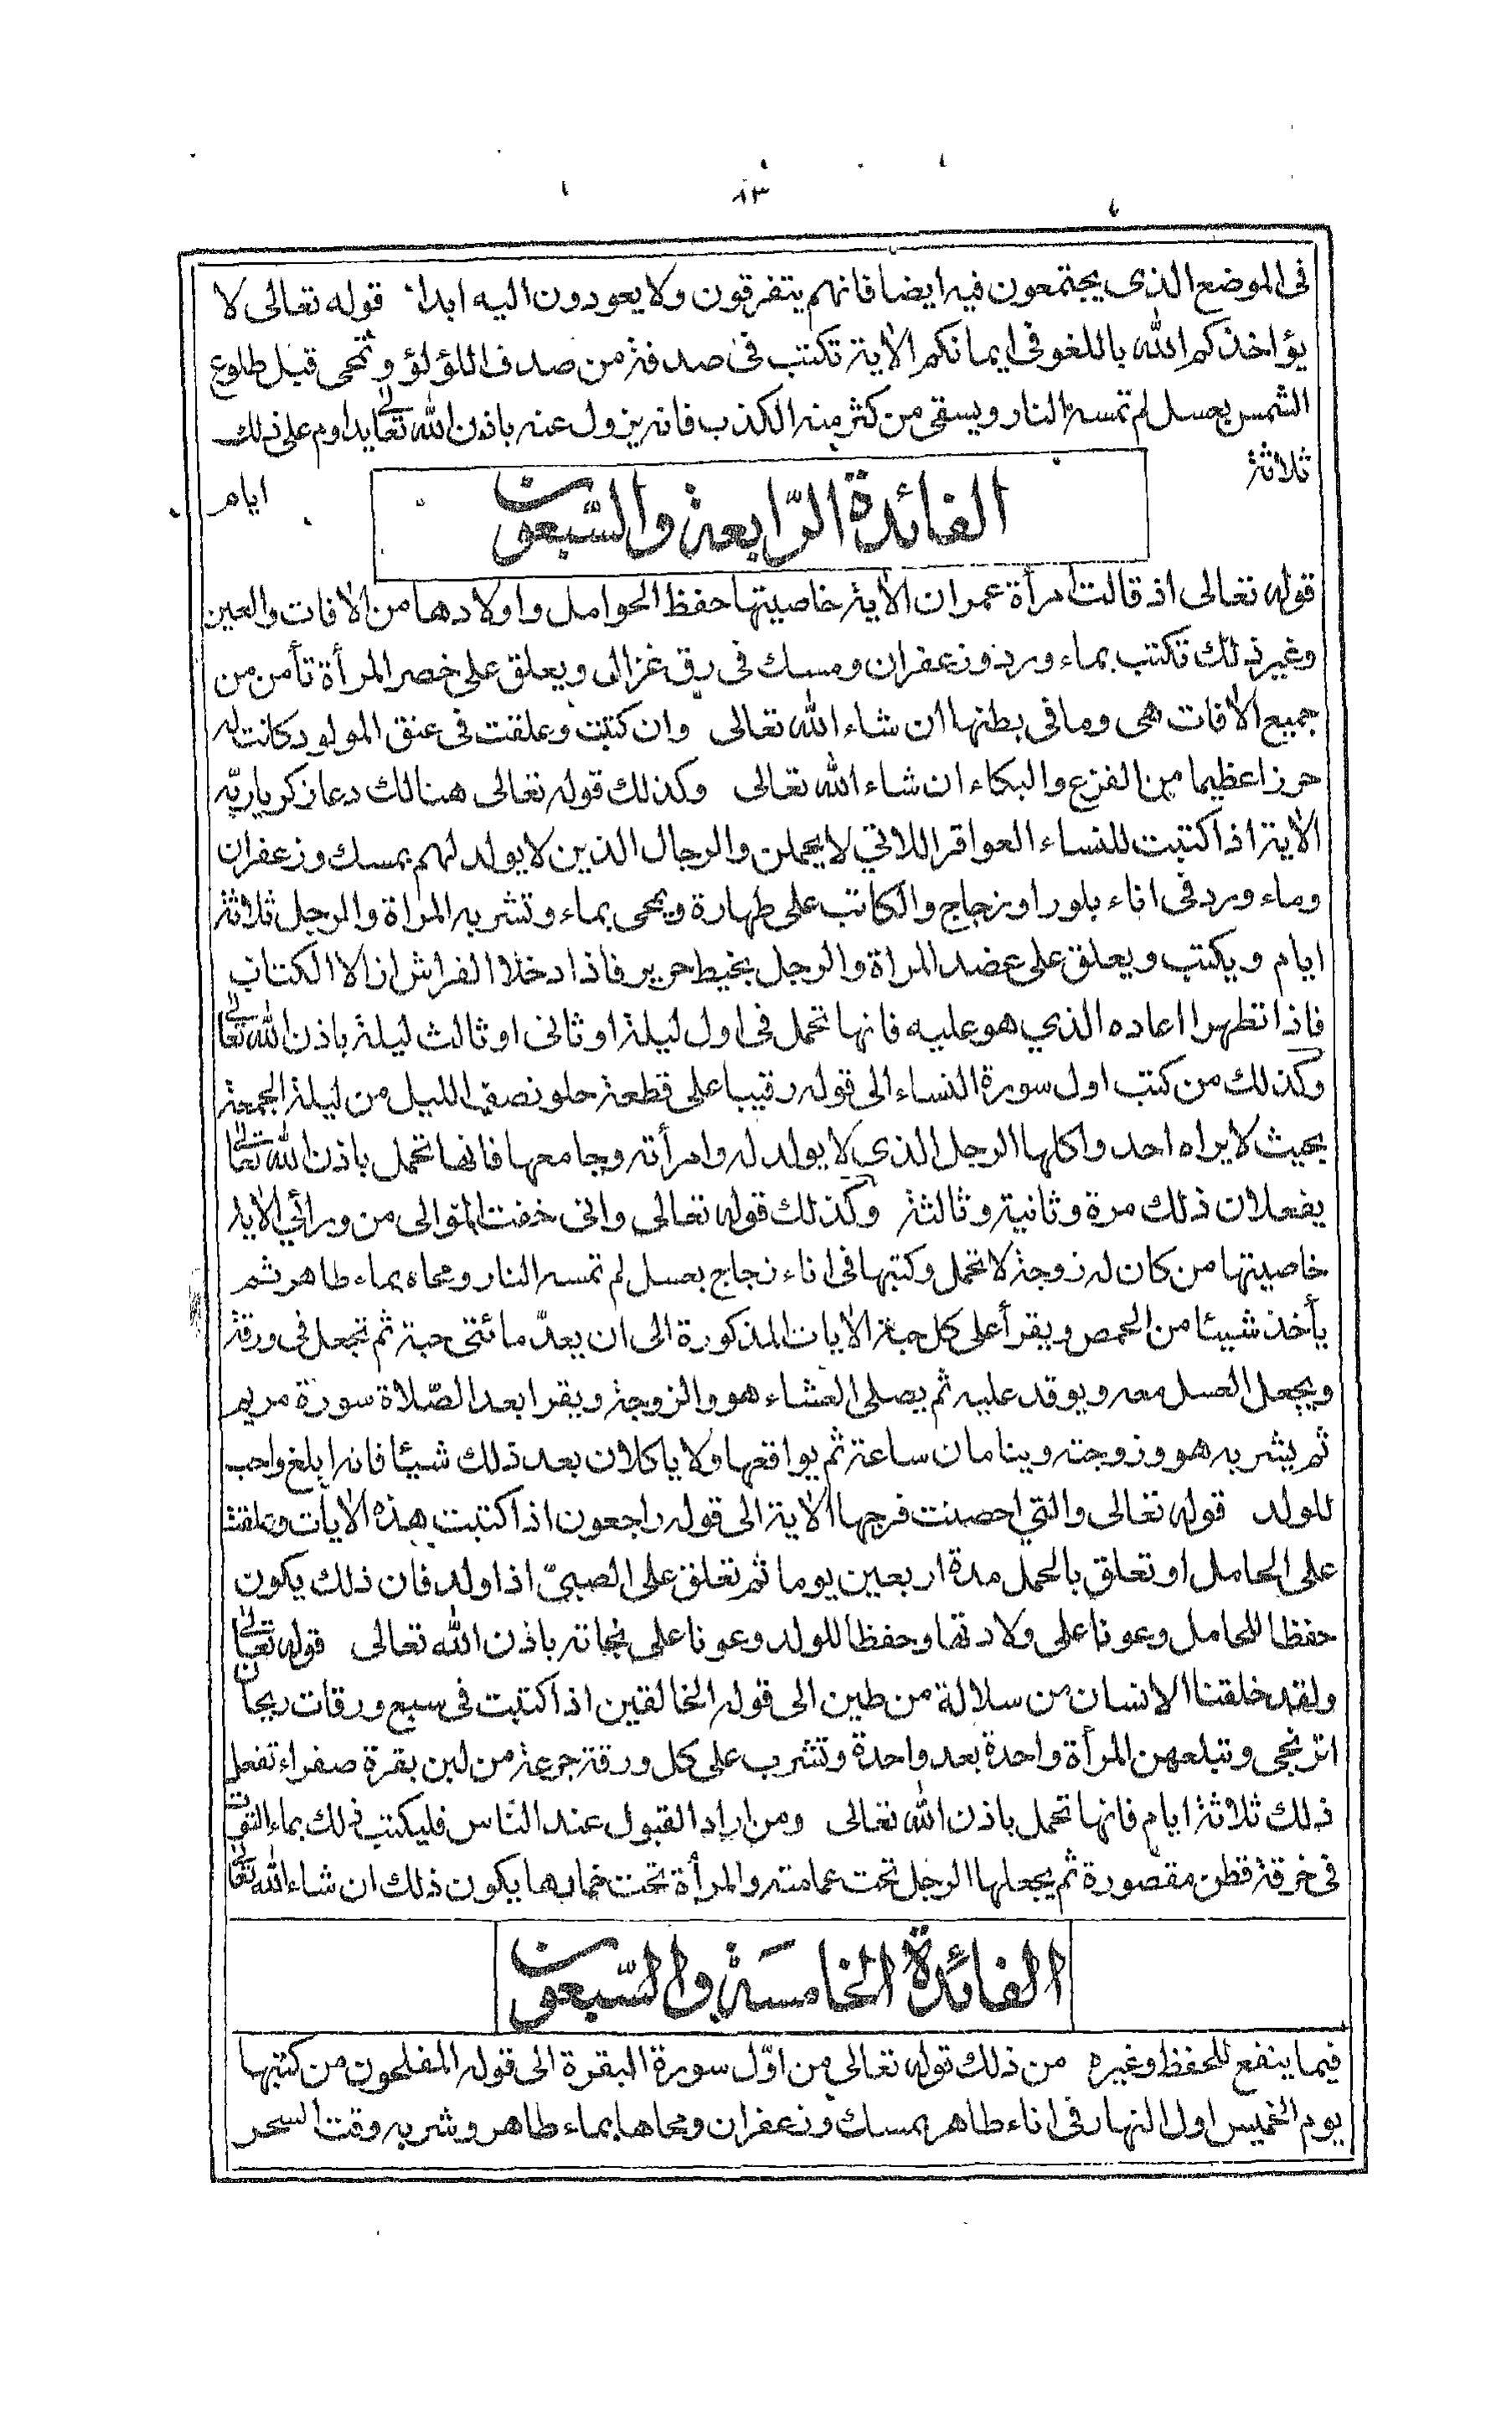 ٨٣
فى الموضع الذى يجتمعون فيه ايضا فانهم يتفرقون ولا يعودون اليه ابدا قوله تعالى لا
يؤاخذكم الله باللغو فى ايمانكم الآية تكتب فى صدفة من صدف اللؤلؤ وتمحى قبل طلوع
الشمس بعسل لم تمسه النار ويسقى من كثر منه الكذب فانه يزول عنه باذن الله تعالى يداوم على ذلك
ثلاثة ايام
الفائدة الرّابعة والسّبعون
قوله تعالى اذ قالت امرأة عمران الآية خاصيتها حفظ الحوامل واولادها من الآفات والعين
وغير ذلك تكتب بماء ورد وزعفران ومسك فى رق غزال ويعلق على خصر المرأة تأمن من
جميع الآفات هى وما فى بطنها ان شاء الله تعالى وان كتبت وعلقت فى عنق المولود كانت له
حرزا عظيما من الفزع والبكاء ان شاء الله تعالى وكذلك قوله تعالى هنالك دعا زكريا ربّه
الآية اذا كتبت للنساء العواقر اللاتي لا يحملن والرجال الذين لا يولد لهم بمسك وزعفران
وماء ورد فى اناء بلور او زجاج والكاتب على طهارة ويمحى بماء وتشربه المراة والرجل ثلاثة
ايام ويكتب ويعلق على عضد المراة والرجل بخيط حرير فاذا دخلا الفراش ازالا الكتاب
فاذا تطهرا اعاده الذي هو عليه فانها تحمل فى اول ليلة او ثانى او ثالث ليلة باذن الله تعالى
وكذلك من كتب اول سورة النساء الى قوله رقيبا على قطعة حلو نصف الليل من ليلة الجمعة
بحيث لا يراه احد واكلها الرجل الذي لا يولد له وامرأته وجامعها فانها تحمل باذن الله تعالى
يفعلان ذلك مرة وثانية وثالثة وكذلك قوله تعالى وانى خفت الموالى من ورائي الآية
خاصيتها من كان له زوجة لا تحمل وكتبها فى اناء زجاج بعسل لم تمسه النار ومحاه بماء طاهر ثم
يأخذ شيئا من الحمص ويقرأ على كل حبة الآيات المذكورة الى ان يعدّ مائتى حبة ثم تجعل فى ورقة
ويجعل العسل معه ويوقد عليه ثم يصلى العشاء هو والزوجة ويقرا بعد الصّلاة سورة مريم
ثم يشربه هو وزوجته وينامان ساعة ثم يواقعها ولا ياكلان بعد ذلك شيئا فانه ابلغ واحب
للولد قوله تعالى والتي احصنت فرجها الآية الى قوله راجعون اذا كتبت هذه الآيات وعلقت
على الحامل او تعلق بالحمل مدة اربعين يوما ثم تعلق على الصبيّ اذا ولد فان ذلك يكون
حفظا للحامل وعونا على ولادتها وحفظا للولد وعونا على نجاته باذن الله تعالى قوله تعالى
ولقد خلقنا الانسان من سلالة من طين الى قوله الخالقين اذا كتبت فى سبع ورقات ريحان
اترنجى وتبلعهن المرأة واحدة بعد واحدة وتشرب على كل ورقة جرعة من لبن بقرة صفراء تفعل
ذلك ثلاثة ايام فانها تحمل باذن الله تعالى ومن اراد القبول عند النّاس فليكتب ذلك بماء التوت
فى خرقة قطن مقصورة ثم يجعلها الرجل تحت عمامته والمرأة تحت خمارها يكون ذلك ان شاء الله تعالى
الفائدة الخامسة والسّبعون
فيما ينفع للحفظ وغيره من ذلك قوله تعالى من اوّل سورة البقرة الى قوله المفلحون من كتبها
يوم الخميس اول النهار فى اناء طاهر بمسك وزعفران ومحاها بماء طاهر وشربه وقت السحر